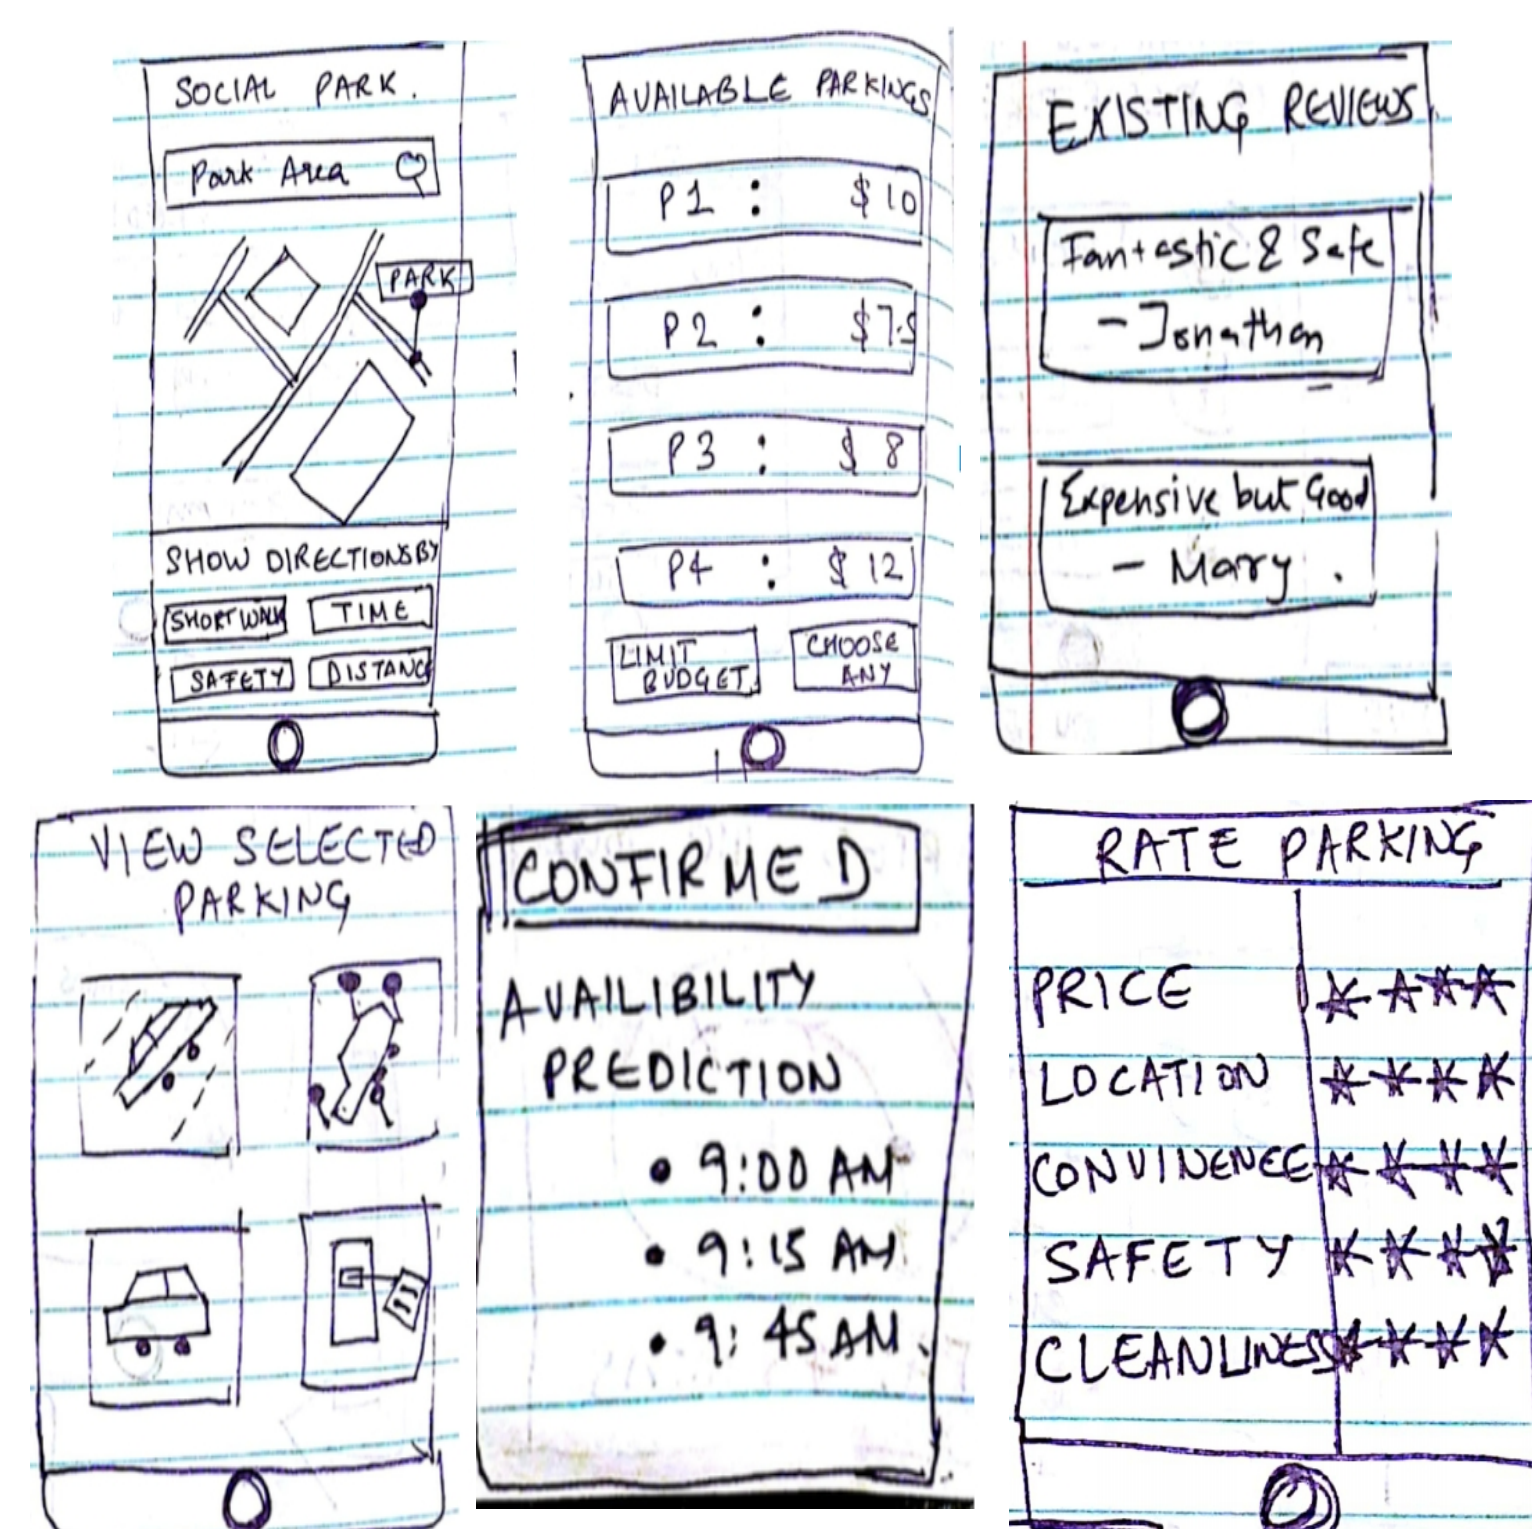 SOCIAL PARK.
Park Area
PARK
SHOW DIRECTIONS BY
SHORT WALK
TIME
SAFETY
DISTANCE
AVAILABLE PARKINGS
P1 : $10
P2 : $7.5
P3 : $8
P4 : $12
LIMIT
BUDGET
CHOOSE
ANY
EXISTING REVIEWS
Fantastic & Safe
- Jonathan
Expensive but Good
- Mary .
VIEW SELECTED
PARKING
CONFIRMED
AVAILIBILITY
PREDICTION
• 9:00 AM
• 9:15 AM.
• 9:45 AM.
RATE PARKING
PRICE ★★★★
LOCATION ★★★★
CONVINENCE ★★★★
SAFETY ★★★★
CLEANLINESS ★★★★